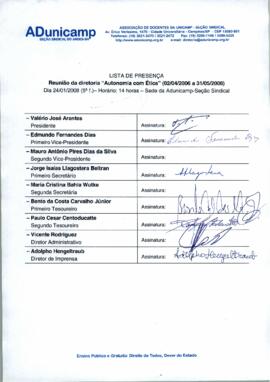 ADunicamp
SEÇÃO SINDICAL DO ANDES-SN
ASSOCIAÇÃO DE DOCENTES DA UNICAMP - SEÇÃO SINDICAL
LISTA DE PRESENÇA
Reunião da diretoria "Autonomia com Ética" (02/04/2006 a 31/05/2008)
Dia 24/01/2008 (5ª f.) – Horário: 14 horas – Sede da Adunicamp-Seção Sindical
– Valério José Arantes
Presidente
Assinatura:
– Edmundo Fernandes Dias
Primeiro Vice-Presidente
Assinatura: Edmundo Fernandes Dias
– Mauro Antônio Pires Dias da Silva
Segundo Vice-Presidente
Assinatura:
– Jorge Isaias Llagostera Beltran
Primeiro Secretário
Assinatura:
– Maria Cristina Bahia Wutke
Segunda Secretária
Assinatura:
– Bento da Costa Carvalho Júnior
Primeiro Tesoureiro
Assinatura:
– Paulo Cesar Centoducatte
Segundo Tesoureiro
Assinatura:
– Vicente Rodriguez
Diretor Administrativo
Assinatura:
– Adolpho Hengeltraub
Diretor de Imprensa
Assinatura: Adolpho Hengeltraub
Ensino Público e Gratuito: Direito de Todos, Dever do Estado